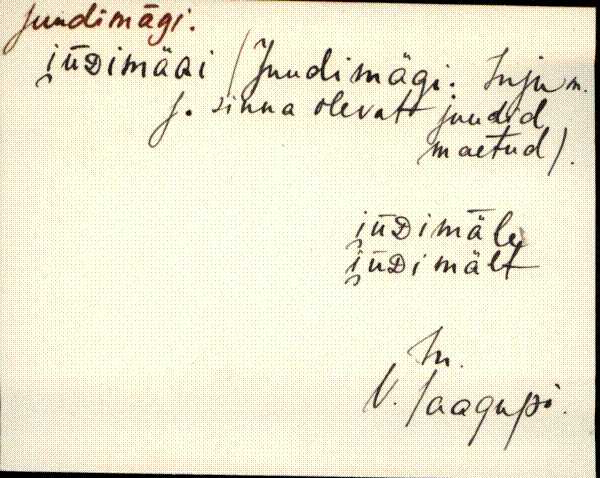 Juudimägi.
jūDimäai (Juudimägi. Inju m.
j. sinna olevat juudid
maetud).
jūDimäle
jūDimält
In.
V. Jaagupi.